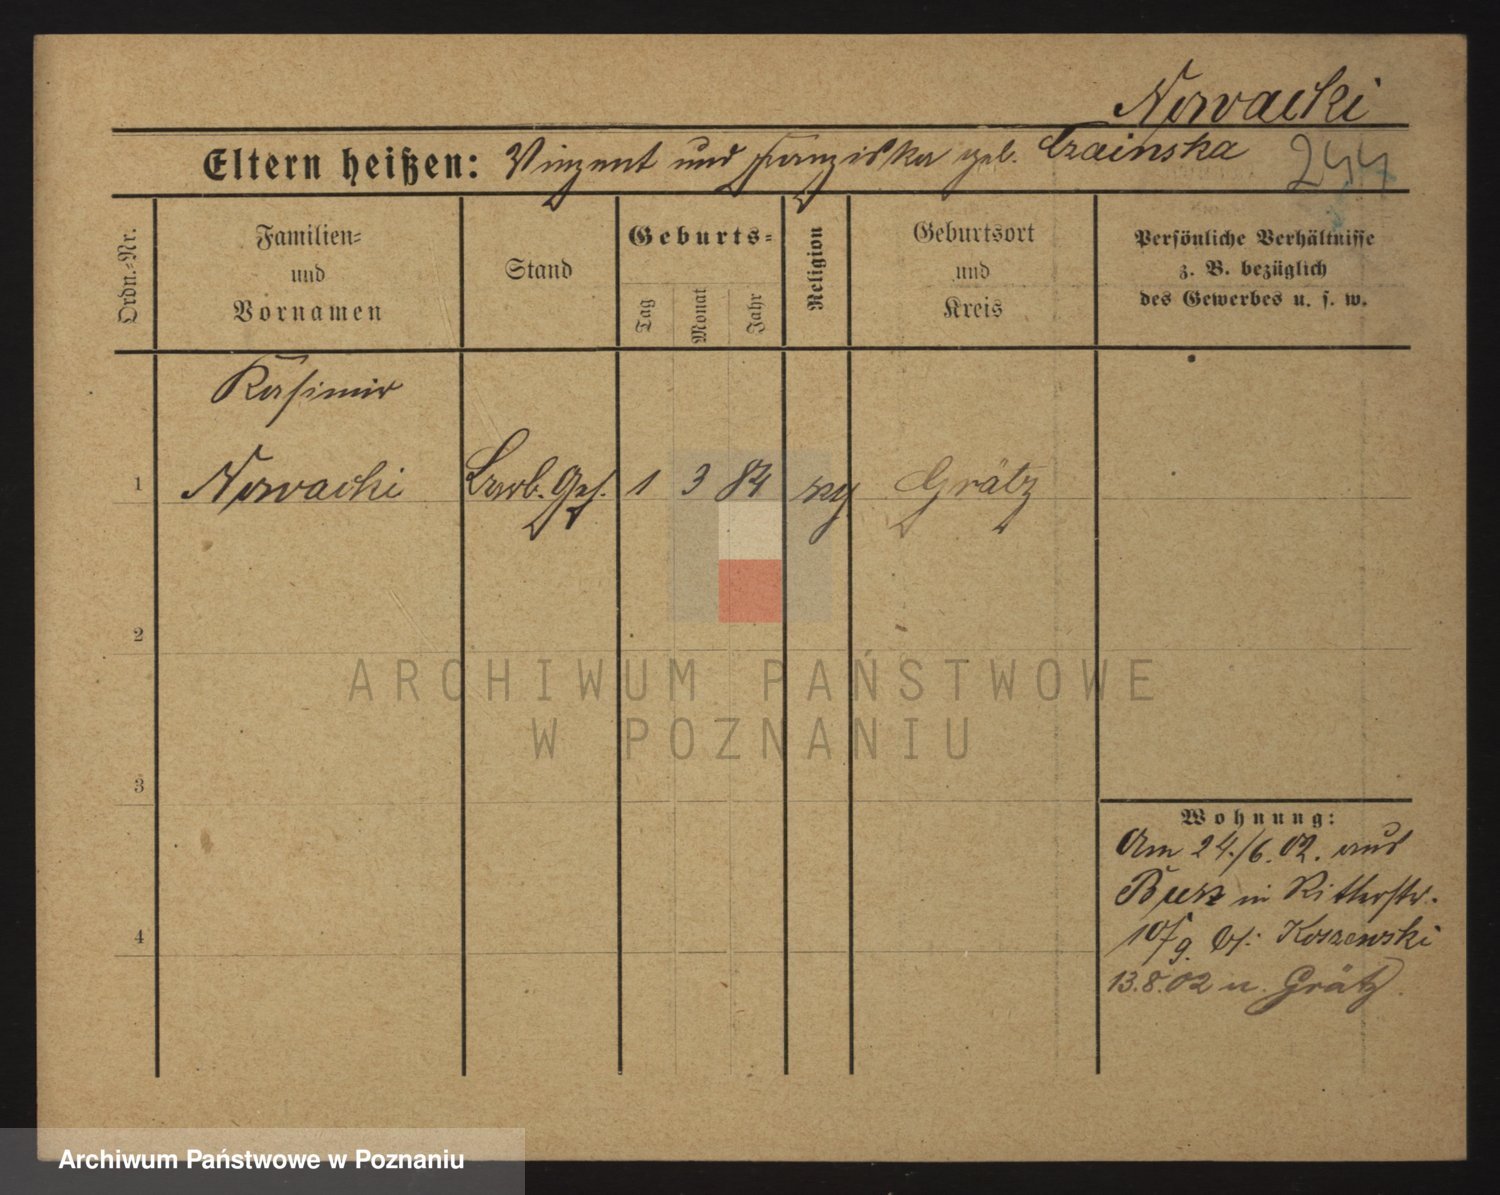 Nowacki
Eltern heißen: Vinzent und Franziska geb. Czainska
244
Ordn.-Nr.
Familien-
und
Vornamen
Stand
Geburts-
Tag
Monat
Jahr
Religion
Geburtsort
und
Kreis
Persönliche Verhältnisse
z. B. bezüglich
des Gewerbes u. s. w.
Kasimir
1 Nowacki Barb. Geh. 1 3 84 Grätz
2
ARCHIWUM PAŃSTWOWE
W POZNANIU
3
Wohnung:
Am 24./6. 02. aus
in Ritterstr.
4
10/9. bei Koszewski
13.8.02 n. Grätz.
Archiwum Państwowe w Poznaniu